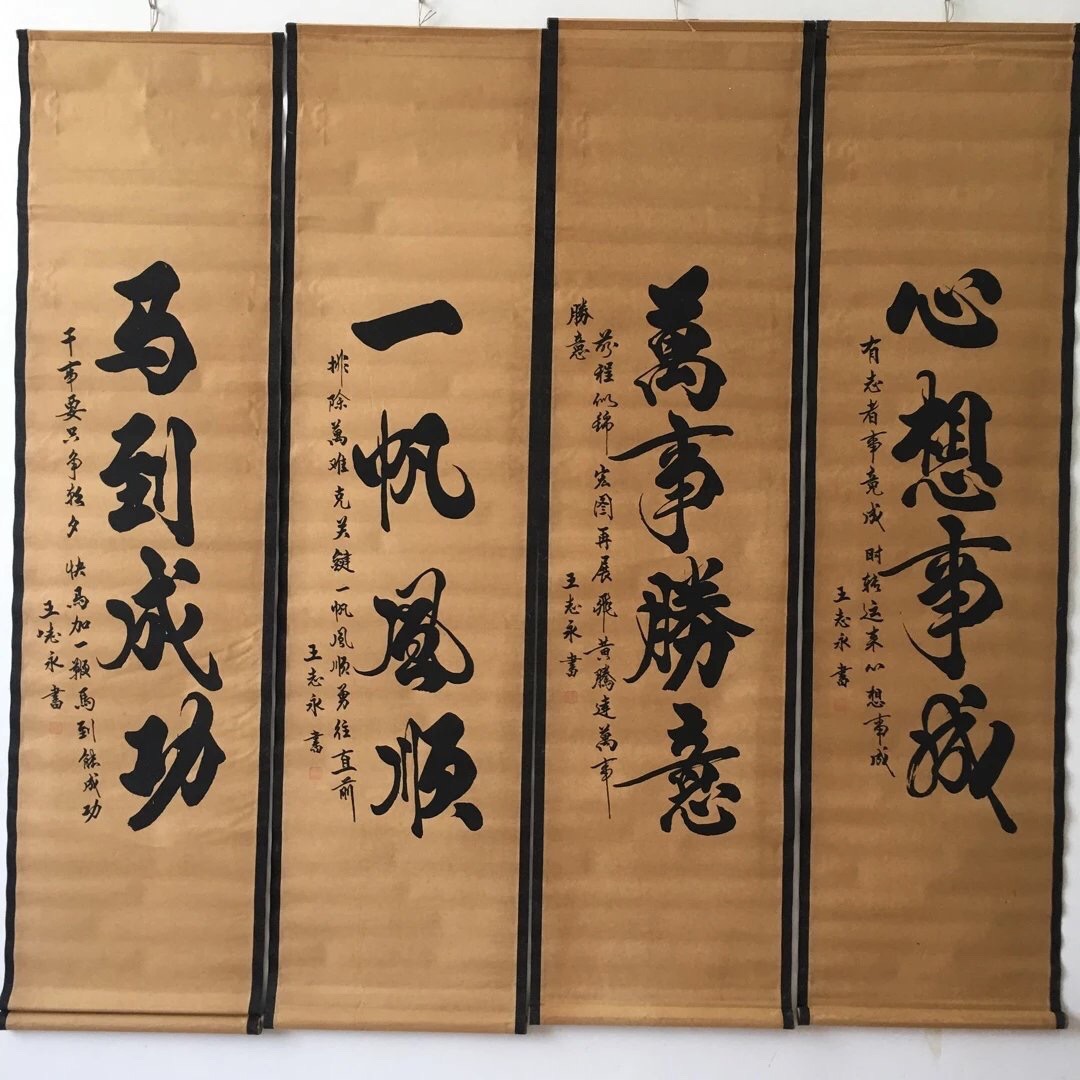 心想事成
有志者事竟成 时转运来心想事成
王志永書
萬事勝意
前程似锦 宏图再展飛黄腾達萬事
勝意
王志永書
一帆風顺
排除萬难克关键一帆风顺勇往直前
王志永書
马到成功
干事要只争朝夕 快馬加一鞭馬到能成功
王志永書